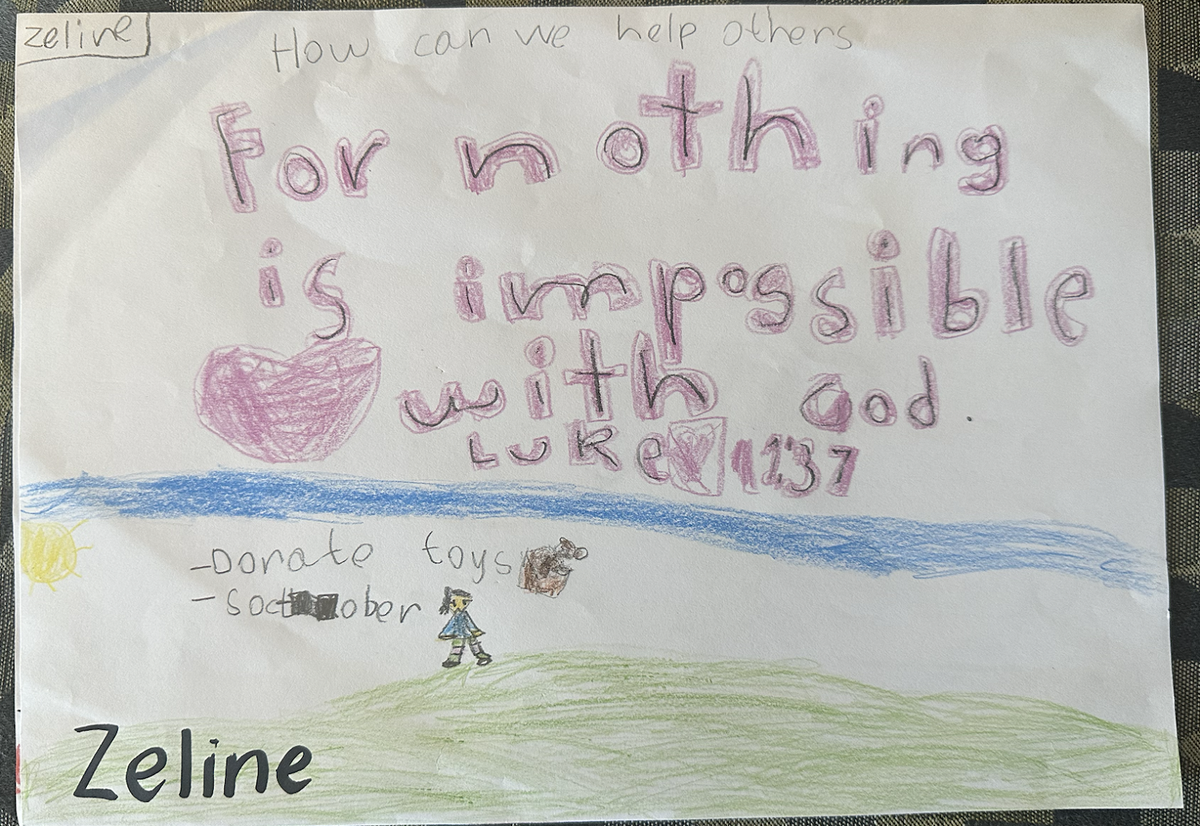 zeline
How can we help others
For nothing
is impossible
with God.
Luke 1:37
-Donate toys
- Soctober
Zeline